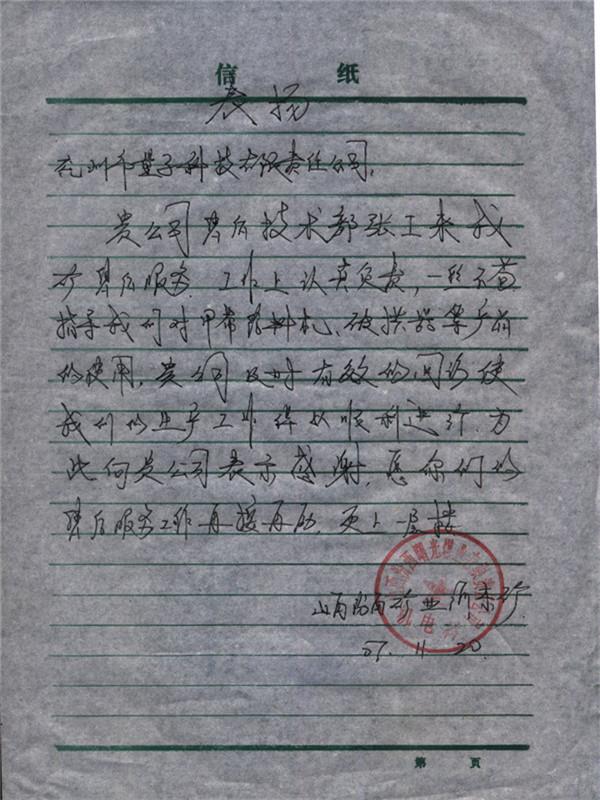 信 纸
表扬
兖州市量子科技有限责任公司,
贵公司售后技术部张工来我
矿售后服务.工作上认真负责,一丝不苟
指导我们对甲带给料机、破拱器等产品
的使用,贵公司及时有效的回访使
我们的生产工作得以顺利进行.为
此向贵公司表示感谢,愿你们的
售后服务工作再接再励,更上一层楼
山西 矿业
机电科
07.11.20.
第 页